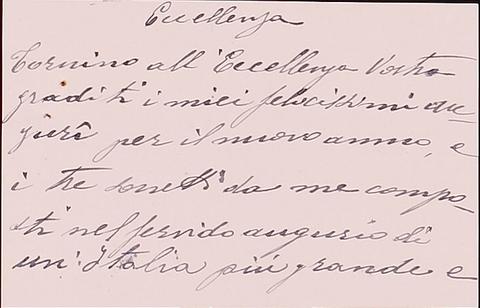 Eccellenza
Tornino all'Eccellenza Vostra
graditi i miei felicissimi au-
gurî per il nuovo anno, e
i tre sonetti da me compo-
sti nel fervido augurio di
un'Italia più grande e